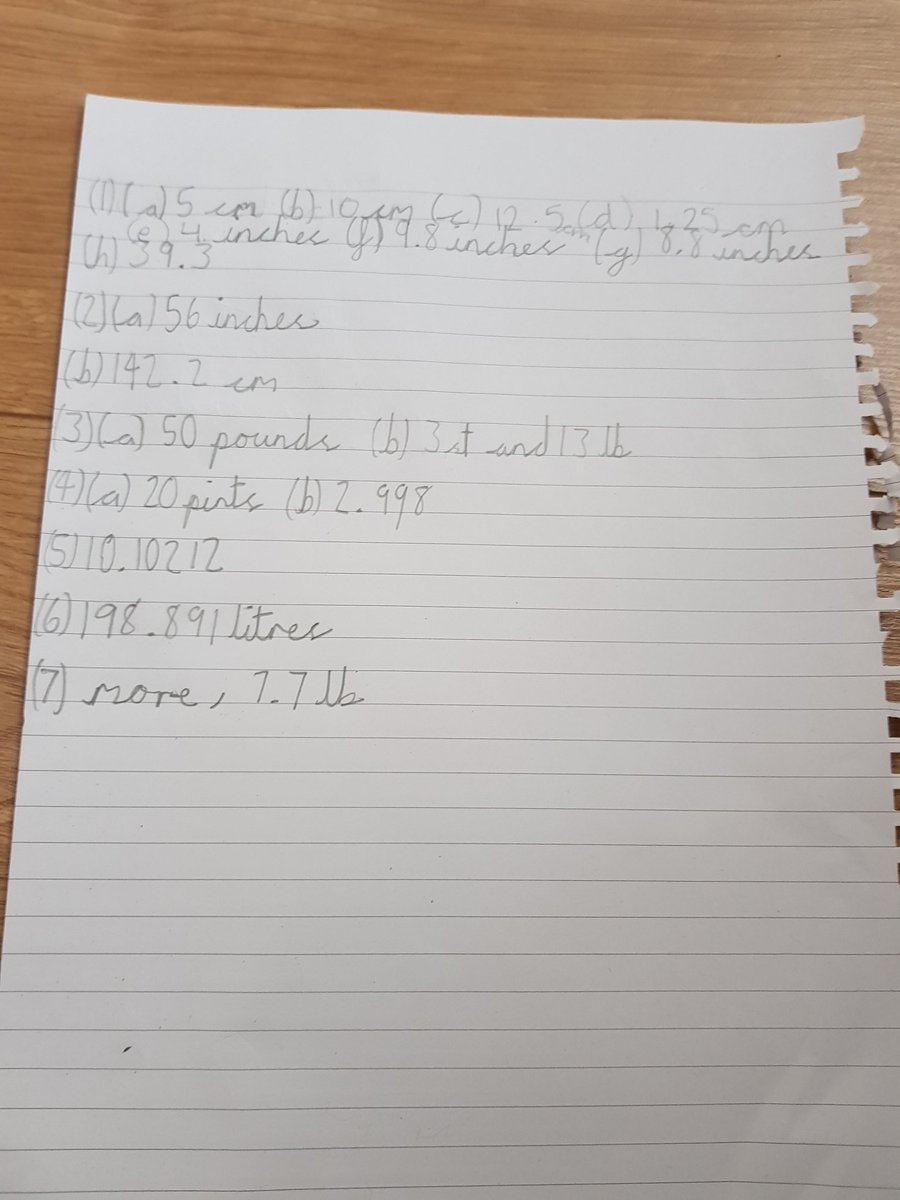 (1)(a) 5 cm (b) 10 cm (c) 12.5cm (d) 1.25 cm
(e) 4 inches (f) 9.8 inches (g) 8.8 inches
(h) 39.3
(2)(a) 56 inches
(b) 142.2 cm
(3)(a) 50 pounds (b) 3st and 13 lb
(4)(a) 20 pints (b) 2.998
(5) 10.10212
(6) 198.891 litres
(7) more, 7.7 lb